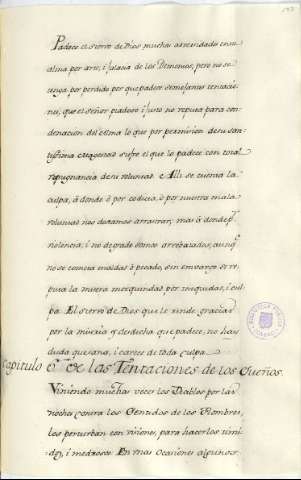 Padece el sieruo de Dios muchas
por arte, i falacia de los Demonios, pero no se
tenga por perdido por que padece semejantes tentacio
nes, que el señor piadoso i justo no reputa para con
denacion del alma lo que por permision de su san
sufre el que lo padece con total
repugnancia de su voluntad. Alli se cuenta la
culpa, à donde ò por codicia, ò por nuestra mala
voluntad nos dexamos arrastrar, mas à donde por
violencia, i no de grado somos arrebatados, aunq
no se cometa maldad ò pecado, sin embargo se re
puta la misera por iniquidad, i cul
pa. El sieruo de Dios que le rinde gracias
por la miseria y desdicha que padece, no hay
duda que sana, i carece de toda culpa
Capitulo 6º De las Tentaciones de los Sueños.
Viniendo muchas veces los Diablos por las
noches contra los Sentidos de los Hombres,
los perturban con visiones, para hacerlos timi
dos, i medrosos. En mas ocasiones algunos